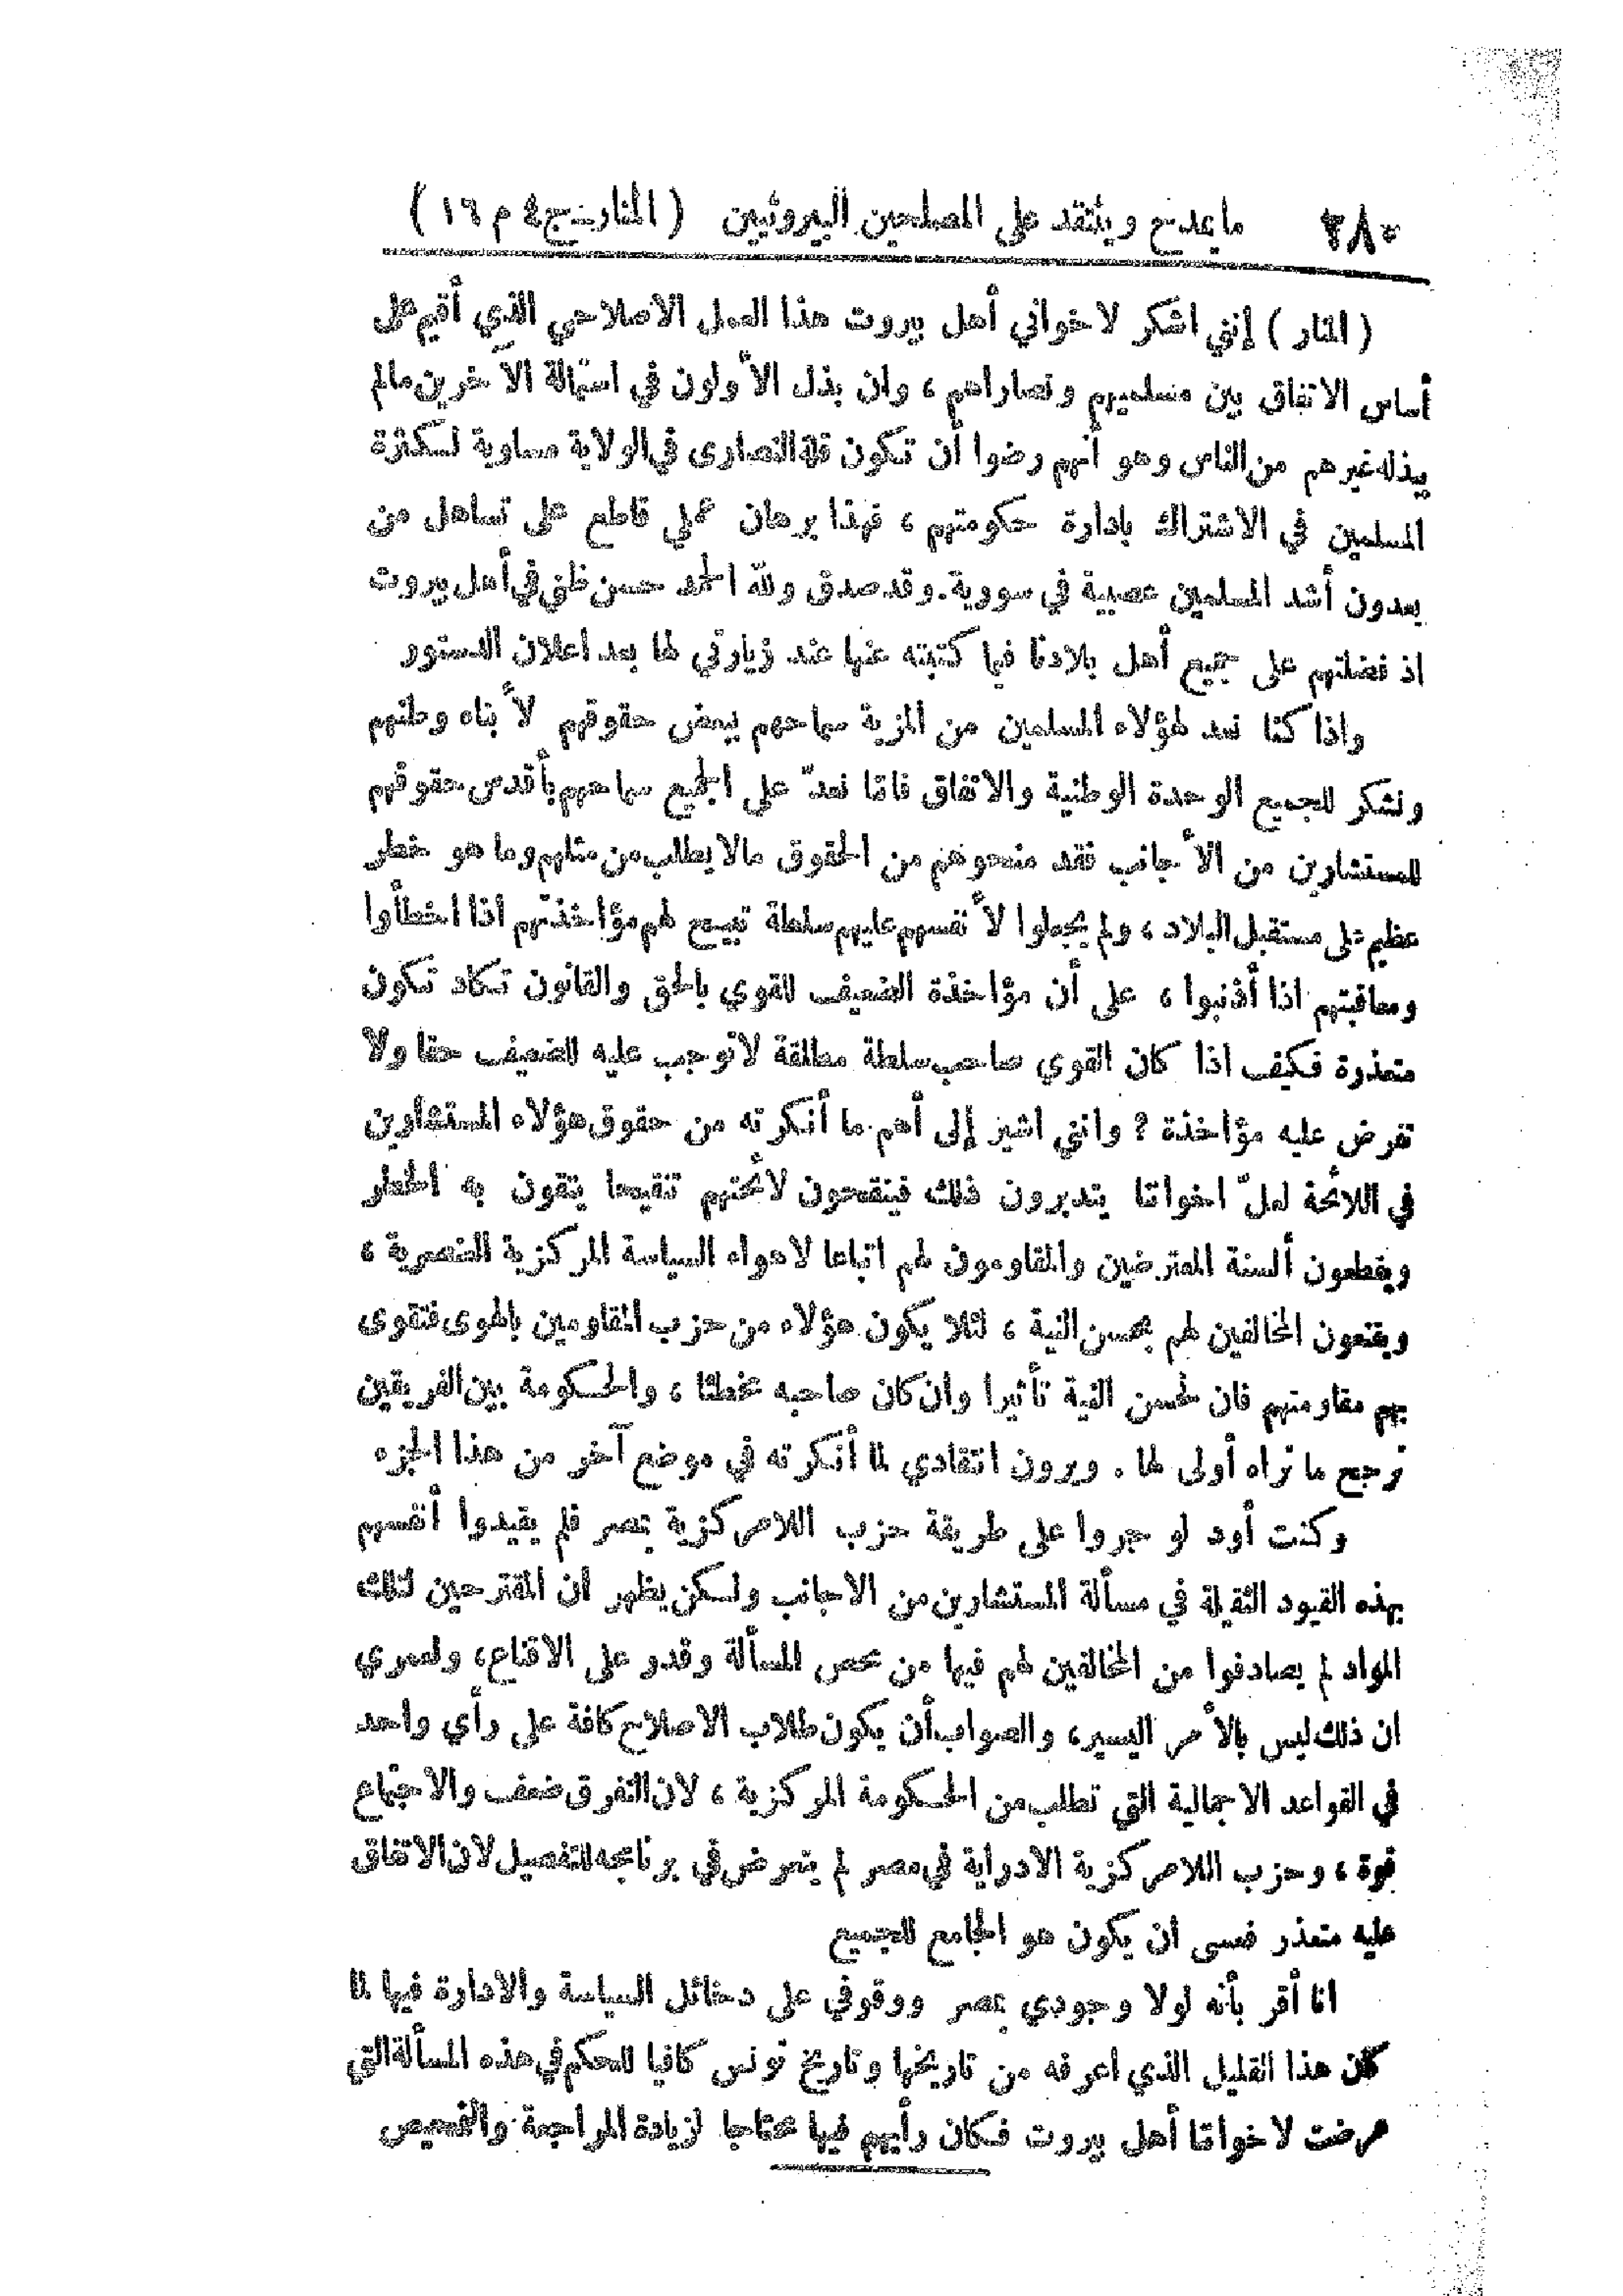 ٢٨٠ ما يمدح وينتقد على المصلحين البيروتيين ( المنار ـ ج ٤ م ١٦ )
( المنار ) إنني اشكر لاخواني أهل بيروت هذا العمل الاصلاحي الذي أقيم على
أساس الاتفاق بين مسلميهم ونصاراهم ، وان بذل الأولون في استمالة الآخرين مالم
يبذله غيرهم من الناس وهو أنهم رضوا أن تكون قلة النصارى في الولاية مساوية لكثرة
المسلمين في الاشتراك بادارة حكومتهم ، فهذا برهان عملي قاطع على تساهل من
يعدون أشد المسلمين عصبية في سورية . وقد صدق ولله الحمد حسن ظني في أهل بيروت
اذ فضلتهم على جميع أهل بلادنا فيما كتبته عنها عند زيارتي لها بعد اعلان الدستور
واذا كنا نعد لهؤلاء المسلمين من المزية سماحهم ببعض حقوقهم لأبناء وطنهم
ونشكر للجميع الوحدة الوطنية والاتفاق فاننا نعدّ على الجميع سماحهم بأقدس حقوقهم
للمستشارين من الأجانب فقد منحوهم من الحقوق مالا يطلب من مثلهم وما هو خطر
عظيم على مستقبل البلاد ، ولم يجعلوا لأنفسهم عليهم سلطة تبيح لهم مؤاخذتهم اذا اخطأوا
ومعاقبتهم اذا أذنبوا ، على أن مؤاخذة الضعيف للقوي بالحق والقانون تكاد تكون
متعذرة فكيف اذا كان القوي صاحب سلطة مطلقة لا توجب عليه للضعيف حقا ولا
تفرض عليه مؤاخذة ؟ وانني اشير إلى أهم ما أنكرته من حقوق هؤلاء المستشارين
في اللائحة لعلّ اخواننا يتدبرون ذلك فينقحون لائحتهم تنقيحا يتقون به الخطر
ويقطعون ألسنة المعترضين والمقاومون لهم اتباعا لاهواء السياسة المركزية العنصرية ،
ويقنعون المخالفين لهم بحسن النية ، لئلا يكون هؤلاء من حزب المقاومين بالهوى فتقوى
بهم مقاومتهم فان لحسن النية تأثيرا وان كان صاحبه مخطئا ، والحكومة بين الفريقين
ترجح ما تراه أولى لها . ويرون انتقادي لما أنكرته في موضع آخر من هذا الجزء
وكنت أود لو جروا على طريقة حزب اللامركزية بمصر فلم يقيدوا أنفسهم
بهذه القيود الثقيلة في مسألة المستشارين من الاجانب ولكن يظهر أن المقترحين لتلك
المواد لم يصادفوا من المخالفين لهم فيها من محص المسألة وقدر على الاقناع ، ولعمري
ان ذلك ليس بالأمر اليسير ، والصواب أن يكون طلاب الاصلاح كافة على رأي واحد
في القواعد الاجمالية التي تطلب من الحكومة المركزية ، لان التفرق ضعف والاجتماع
قوة ، وحزب اللامركزية الادراية في مصر لم يتعرض في برنامجه للتفصيل لان الاتفاق
عليه متعذر فعسى أن يكون هو الجامع للجميع
انا أقر بأنه لولا وجودي بمصر ووقوفي على دخائل السياسة والادارة فيها لما
كان هذا القليل الذي اعرفه من تاريخها وتاريخ تونس كافيا للحكم في هذه المسألة التي
عرضت لاخواننا أهل بيروت فكان رأيهم فيها محتاجا لزيادة المراجعة والتمحيص